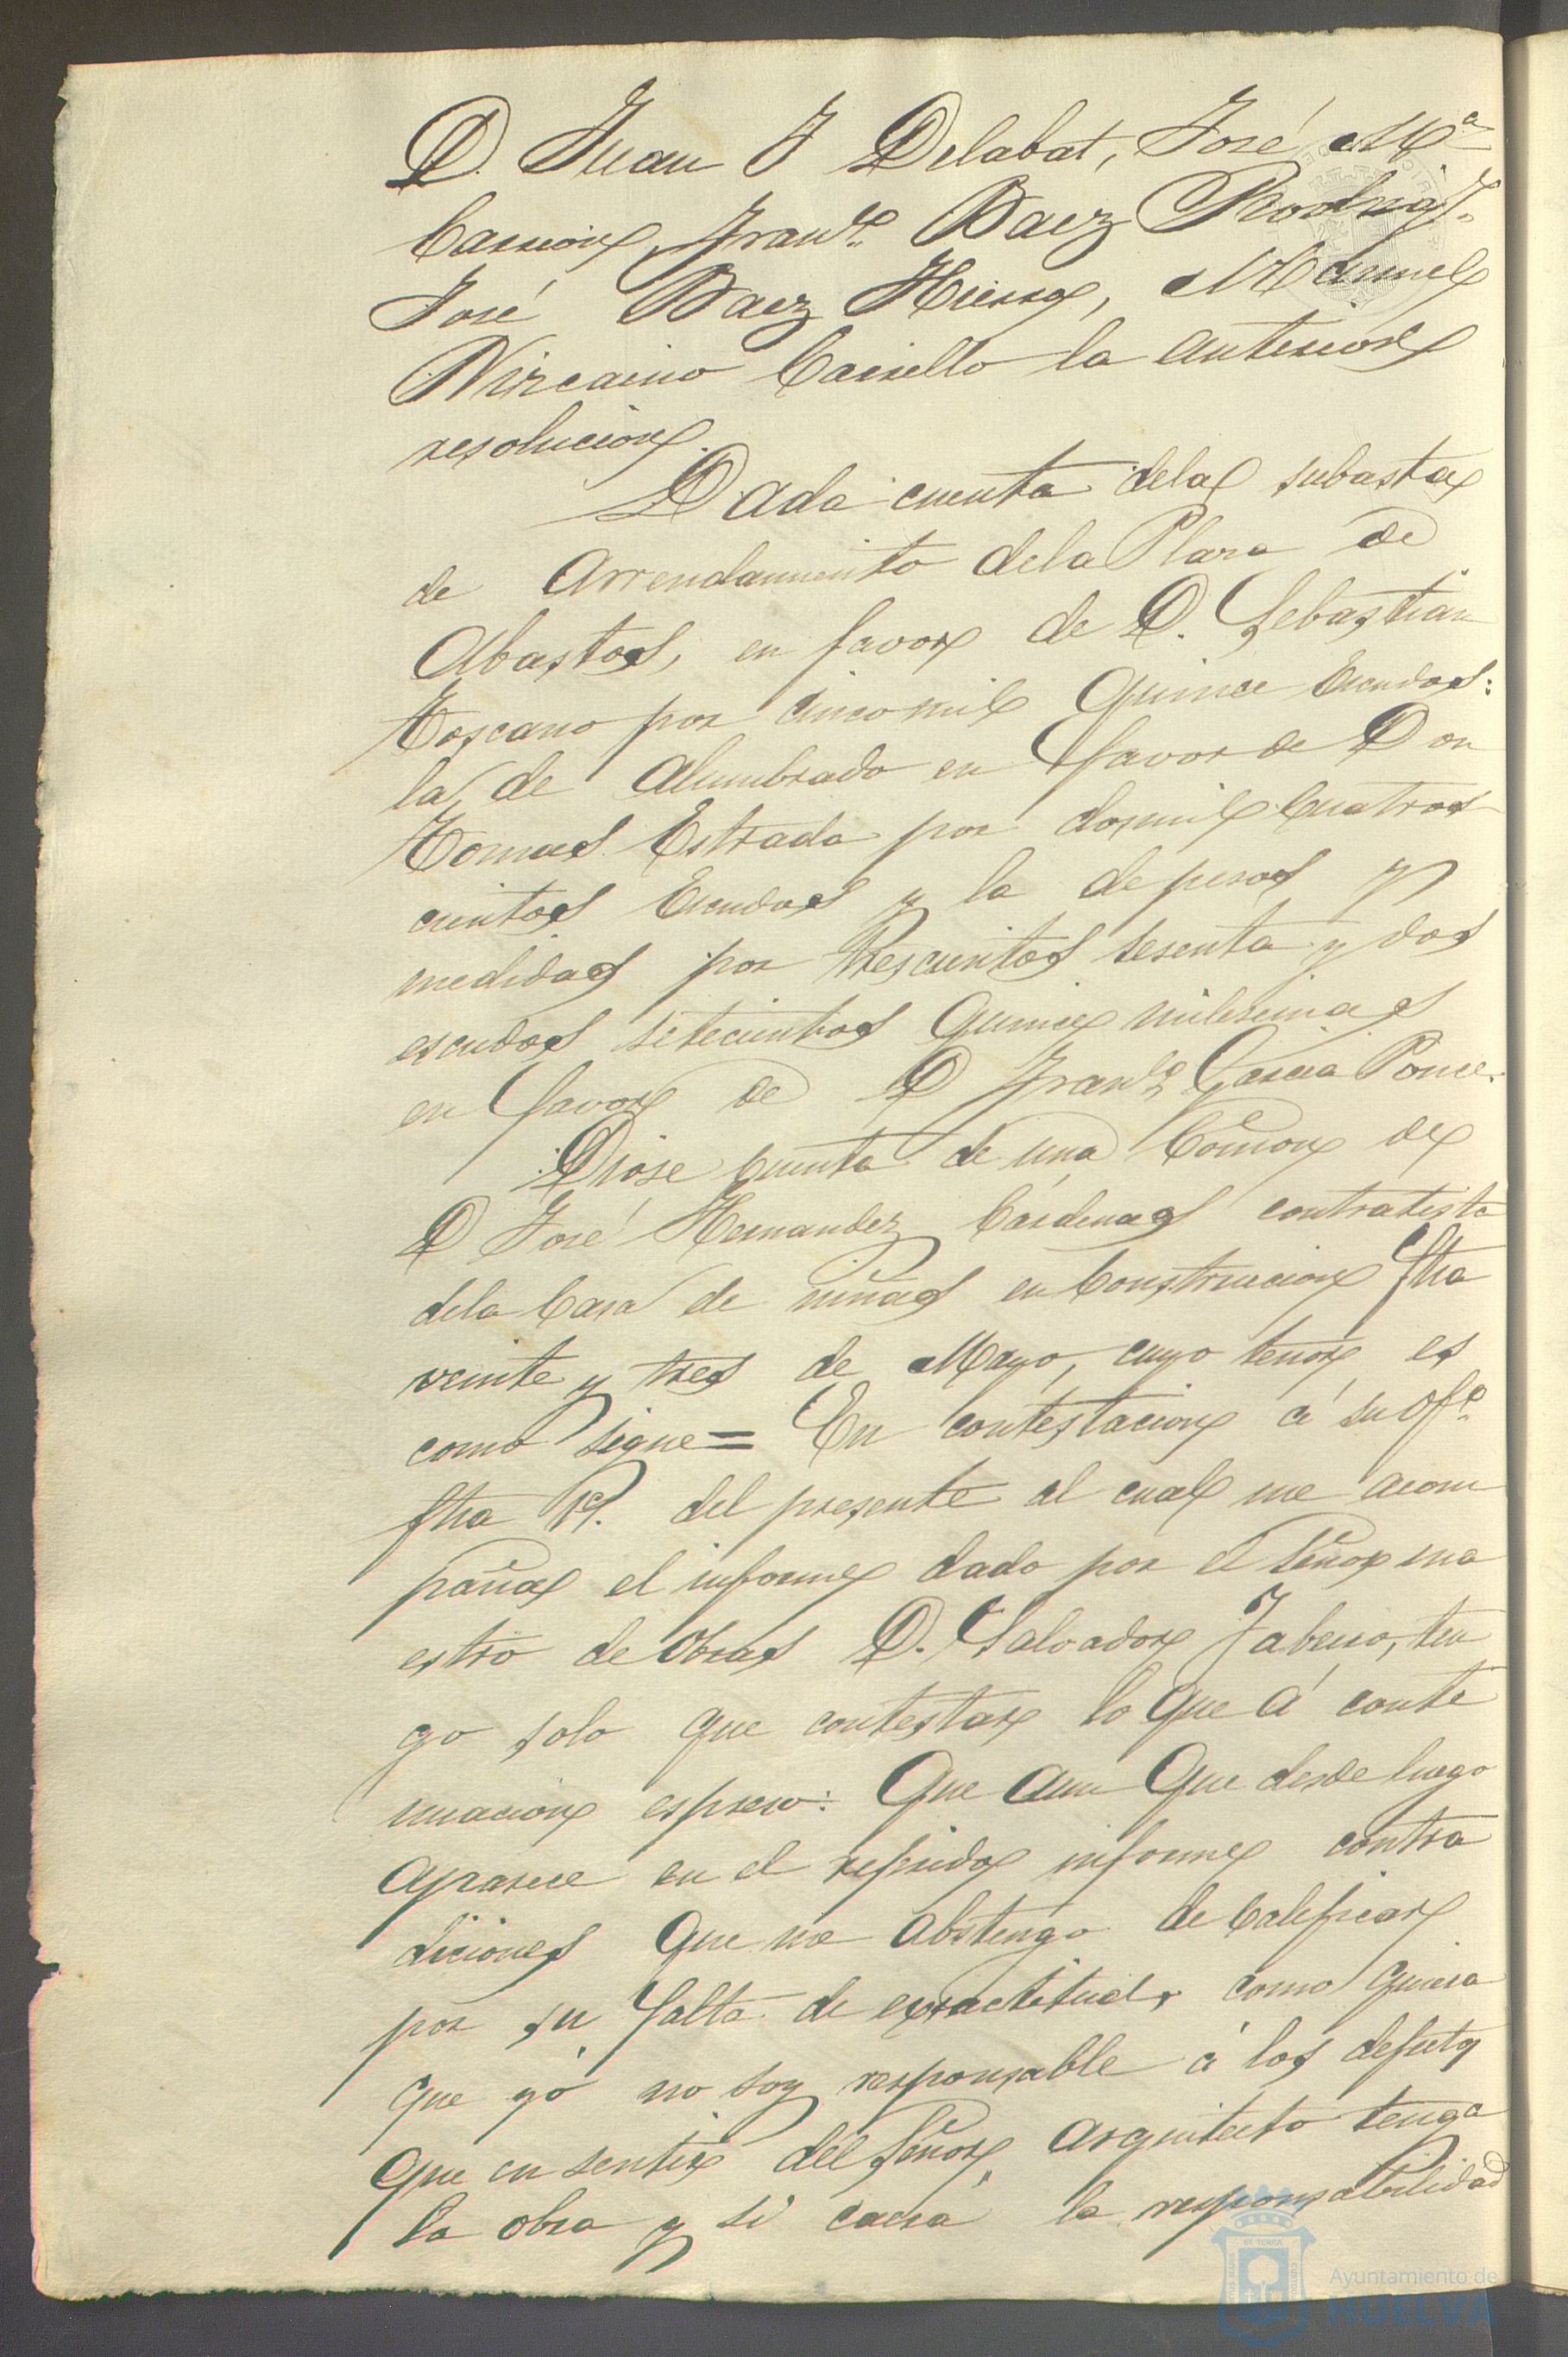 D. Juan J Delabat, José Mª
Carrion, Franco. Baez Rodrigz.
José Baez Hierro, Manuel
Vizcaino Carrillo la anterior
resolucion.
Dada cuenta dela subasta
de Arrendamiento dela Plaza de
Abastos, en favor de D. Sebastian
Toscano por cinco mil quince Escudos:
la de Alumbrado en favor de Don
Tomas Estrada por dos mil Cuatros
cientos Escudos y la de pesos y
medidas por Trescientos sesenta y dos
escudos setecientos quince milesimas
en favor de D Franco. Garcia Ponce.
Diose Cuenta de una Comon de
D José Hernandez Cárdenas contratista
dela Casa de niñas en Construccion fha
veinte y tres de Mayo, cuyo tenor es
como sigue = En contestacion á su ofo.
fha 19. del presente al cual me acom
paña el informe dado por el Señor ma
estro de Obras D. Salvador Tabero, ten
go solo que contestar lo que á conti
nuacion espreso: Que aun que desde luego
aparece en el referido informe contra
diciones que me abstengo de Calificar
por su falta de exsactitud, como quiera
que yó no soy responsable á los defectos
que en sentir del Señor arquitecto tenga
la obra y si caera la responsabilidad
Ayuntamiento de
HUELVA